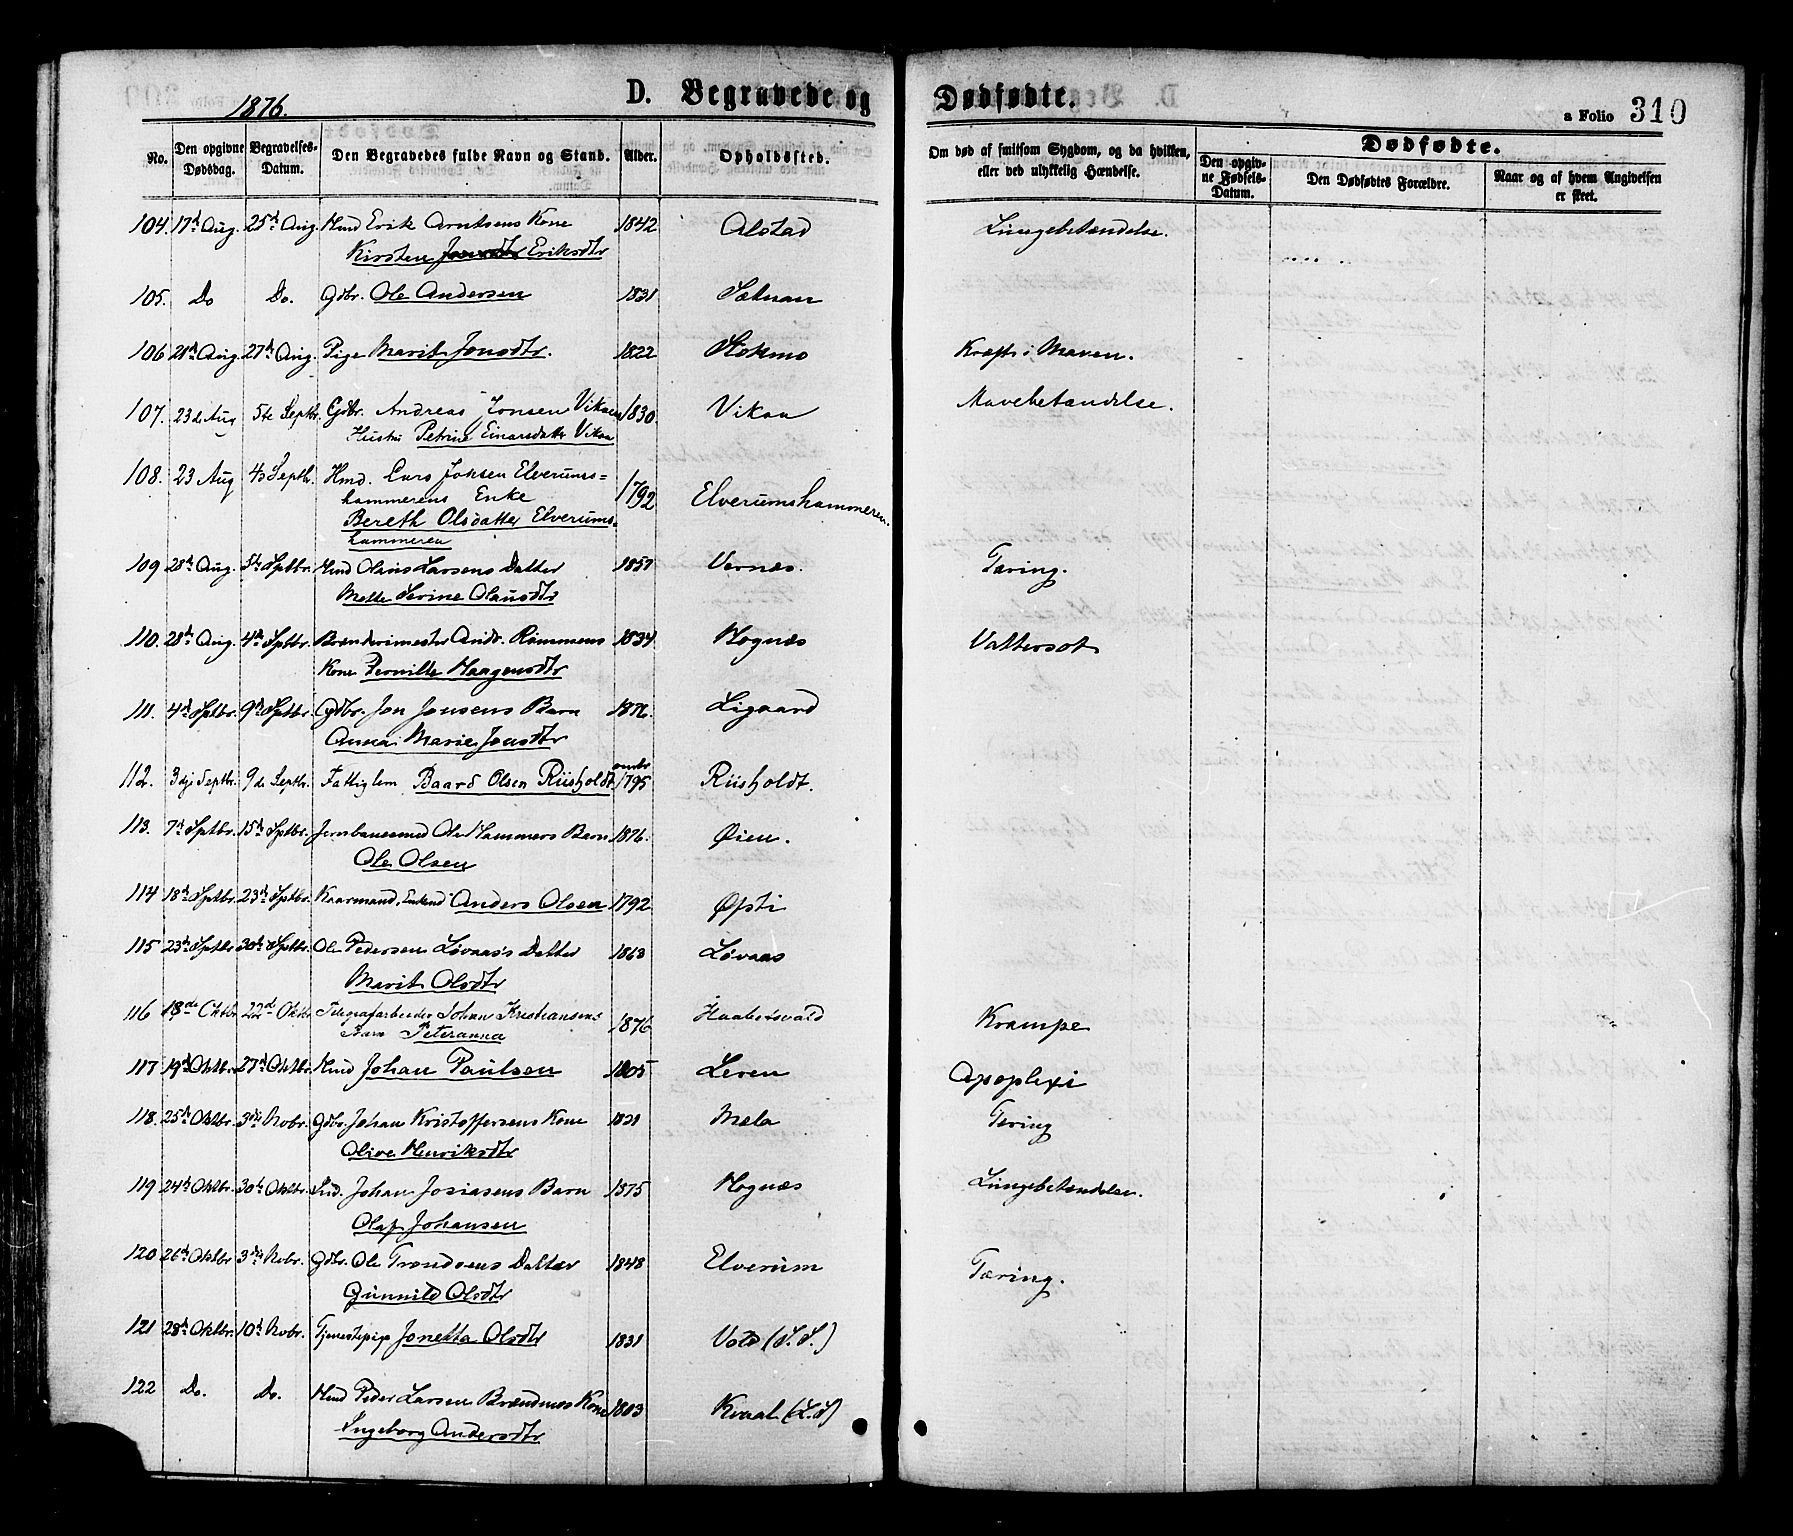 1876.
D. Begravede og Dødfødte.
a Folio 310
No.
Den opgivne Dødsdag.
Begravelses-Datum.
Den Begravedes fulde Navn og Stand.
Alder.
Opholdssted.
Om død af smitsom Sygdom, og da hvilken, eller ved ulykkelig Hændelse.
Dødfødte.
Den opgivne Fødsels-Datum.
Den Dødfødtes Forældre.
Naar og af hvem Angivelsen er skeet.
104. 17de Aug. 25de Aug. Hmd Erik Arntsens Kone 1842 Alstad Lungebetændelse.
Kirsten Eriksdtr
105. Do Do. Gdbr. Ole Andersen 1831
106 21de Aug. 27de Aug. Pige Marit Jonsdtr. 1822 Stokmo Kræft i Maven.
107. 23de Aug 5te Septbr. Gdbr. Andreas Jonsen Vikaas 1830. Vikaa Mavebetændelse.
Hustru Petrine Einarsdatter Vikaa
108. 23 Aug 4de Septbr. Hmd. Lars Jonsen Elverums=
hammerens Enke 1792 Elverumshammeren.
Bereth Olsdatter Elverums-
hammeren
109 28de Aug. 5te Sptbr. Hmd Olaus Larsens Datter 1857 Vernæs. Tæring.
Mette Serine Olausdtr
110. 28de Aug. 4de Sptbr. Andr. Rommens 1834 Hognæs Vattersot
Kone Pernille Haagensdtr
111. 4de Sptbr. 9de Sptbr. Gdbr. Jon Jonsens Barn 1876. Ligaard
Anna Marie Jonsdtr
112. 3dje Septbr. 9de Septbr. Fattiglem Baard Olsen Riisholdt ombr 1795 Riisholdt.
113. 7de Sptbr. 15de Sptbr. Jernbanesmed Ole Hammers Barn 1876. Øien.
Ole Olsen
114 18de Sptbr. 23de Sptbr. Kaarmand, Enkmd Anders Olsen 1792 Øfsti
115 23de Sptbr 30te Sptbr. Ole Pedersen Løvaas's Datter 1863 Løvaas
Marit Olsdtr
116 18de Oktbr 22de Oktbr Telegrafarbeider Johan Kristiansens 1876 Krampe
Barn Peteranna
117 19de Oktbr 27de Oktbr. Hmd Johan Paulsen 1805 Leren Apoplexi
118. 25de Oktbr. 3die Novbr. Gdbr. Johan Kristoffersens Kone 1821 Mæla Tæring
Olive Henriksdtr
119 24de Oktbr. 30te Oktbr. Johan Josiasens Barn 1875 Hognæs Lungebetændelse.
Olaf Johansen
120 26de Oktbr 3die Novbr. Gdbr. Ole Trondsens Datter 1848 Elverum Tæring.
Gunnild Olsdtr
121 28de Oktbr. 10de Novbr. Tjenestepige Jonetta Olsdtr 1831 Vold (S.S.)
122 Do. Do. Hmd Peder Larsen Brændmos Kone 1803 Kvaal (L.S)
Ingeborg Andersdtr